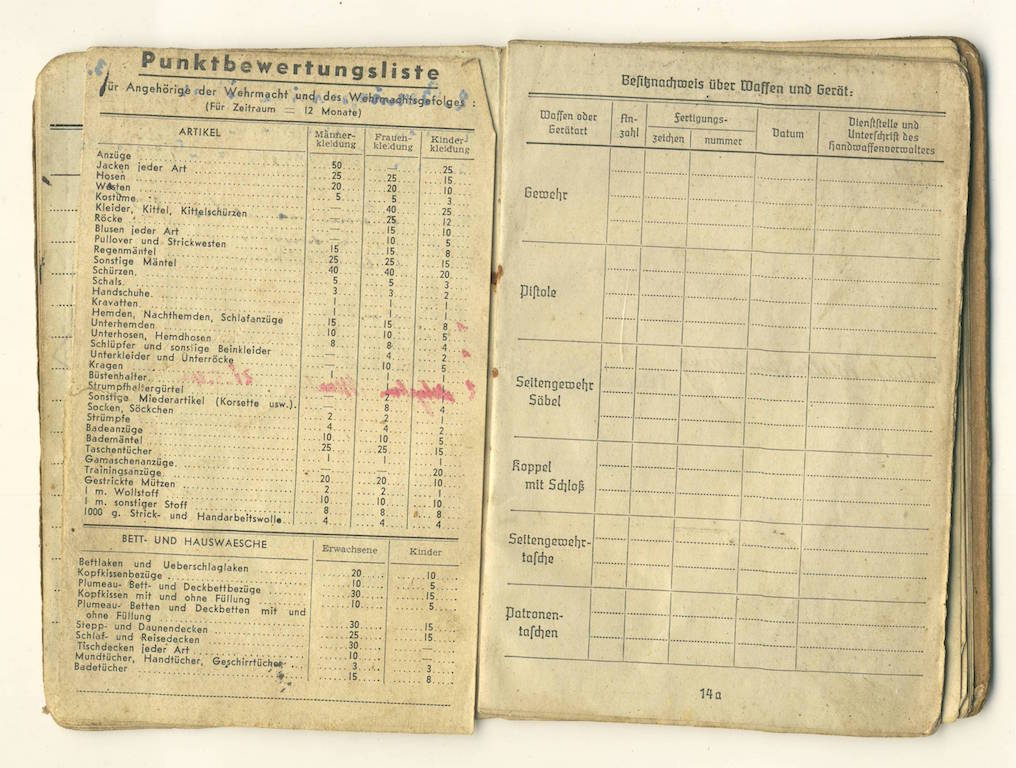 Punktbewertungsliste
für Angehörige der Wehrmacht und des Wehrmachtsgefolges :
(Für Zeitraum = 12 Monate)
ARTIKEL Männer-kleidung Frauen-kleidung Kinder-kleidung
Anzüge 50 — 25
Jacken jeder Art 25 25 15
Hosen 20 20 10
Westen 5 5 3
Kostüme — 40 25
Kleider, Kittel, Kittelschürzen — 25 12
Röcke — 15 10
Blusen jeder Art — 10 5
Pullover und Strickwesten 15 15 8
Regenmäntel 25 25 15
Sonstige Mäntel 40 40 20
Schürzen 5 5 3
Schals 3 3 2
Handschuhe 1 1 1
Kravatten 1 1 1
Hemden, Nachthemden, Schlafanzüge 15 15 8
Unterhemden 10 10 5
Unterhosen, Hemdhosen 8 8 4
Schlüpfer und sonstige Beinkleider — 4 2
Unterkleider und Unterröcke — 10 5
Kragen 1 1 1
Büstenhalter
Strumpfhaltergürtel — 2
Sonstige Miederartikel (Korsette usw.) — 8 4
Socken, Söckchen 2 2 1
Strümpfe 4 4 2
Badeanzüge 10 10 5
Bademäntel 25 25 15
Taschentücher 1 1 1
Gamaschenanzüge — — 20
Trainingsanzüge 20 20 10
Gestrickte Mützen 2 2 1
1 m. Wollstoff 10 10 10
1 m. sonstiger Stoff 8 8 8
1000 g. Strick- und Handarbeitswolle 4 4 4
BETT- UND HAUSWAESCHE Erwachsene Kinder
Bettlaken und Ueberschlaglaken 20 10
Kopfkissenbezüge 10 5
Plumeau- Bett- und Deckbettbezüge 30 15
Kopfkissen mit und ohne Füllung 10 5
Plumeau- Betten und Deckbetten mit und
ohne Füllung 30 15
Stepp- und Daunendecken 25 15
Schlaf- und Reisedecken 30 —
Tischdecken jeder Art 10 —
Mundtücher, Handtücher, Geschirrtücher 3 3
Badetücher 15 8
Besitznachweis über Waffen und Gerät:
Waffen oder Gerätart An-zahl Fertigungs- zeichen nummer Datum Dienststelle und Unterschrift des Handwaffenverwalters
Gewehr
Pistole
Seitengewehr
Säbel
Koppel
mit Schloß
Seitengewehr-
tasche
Patronen-
taschen
14a